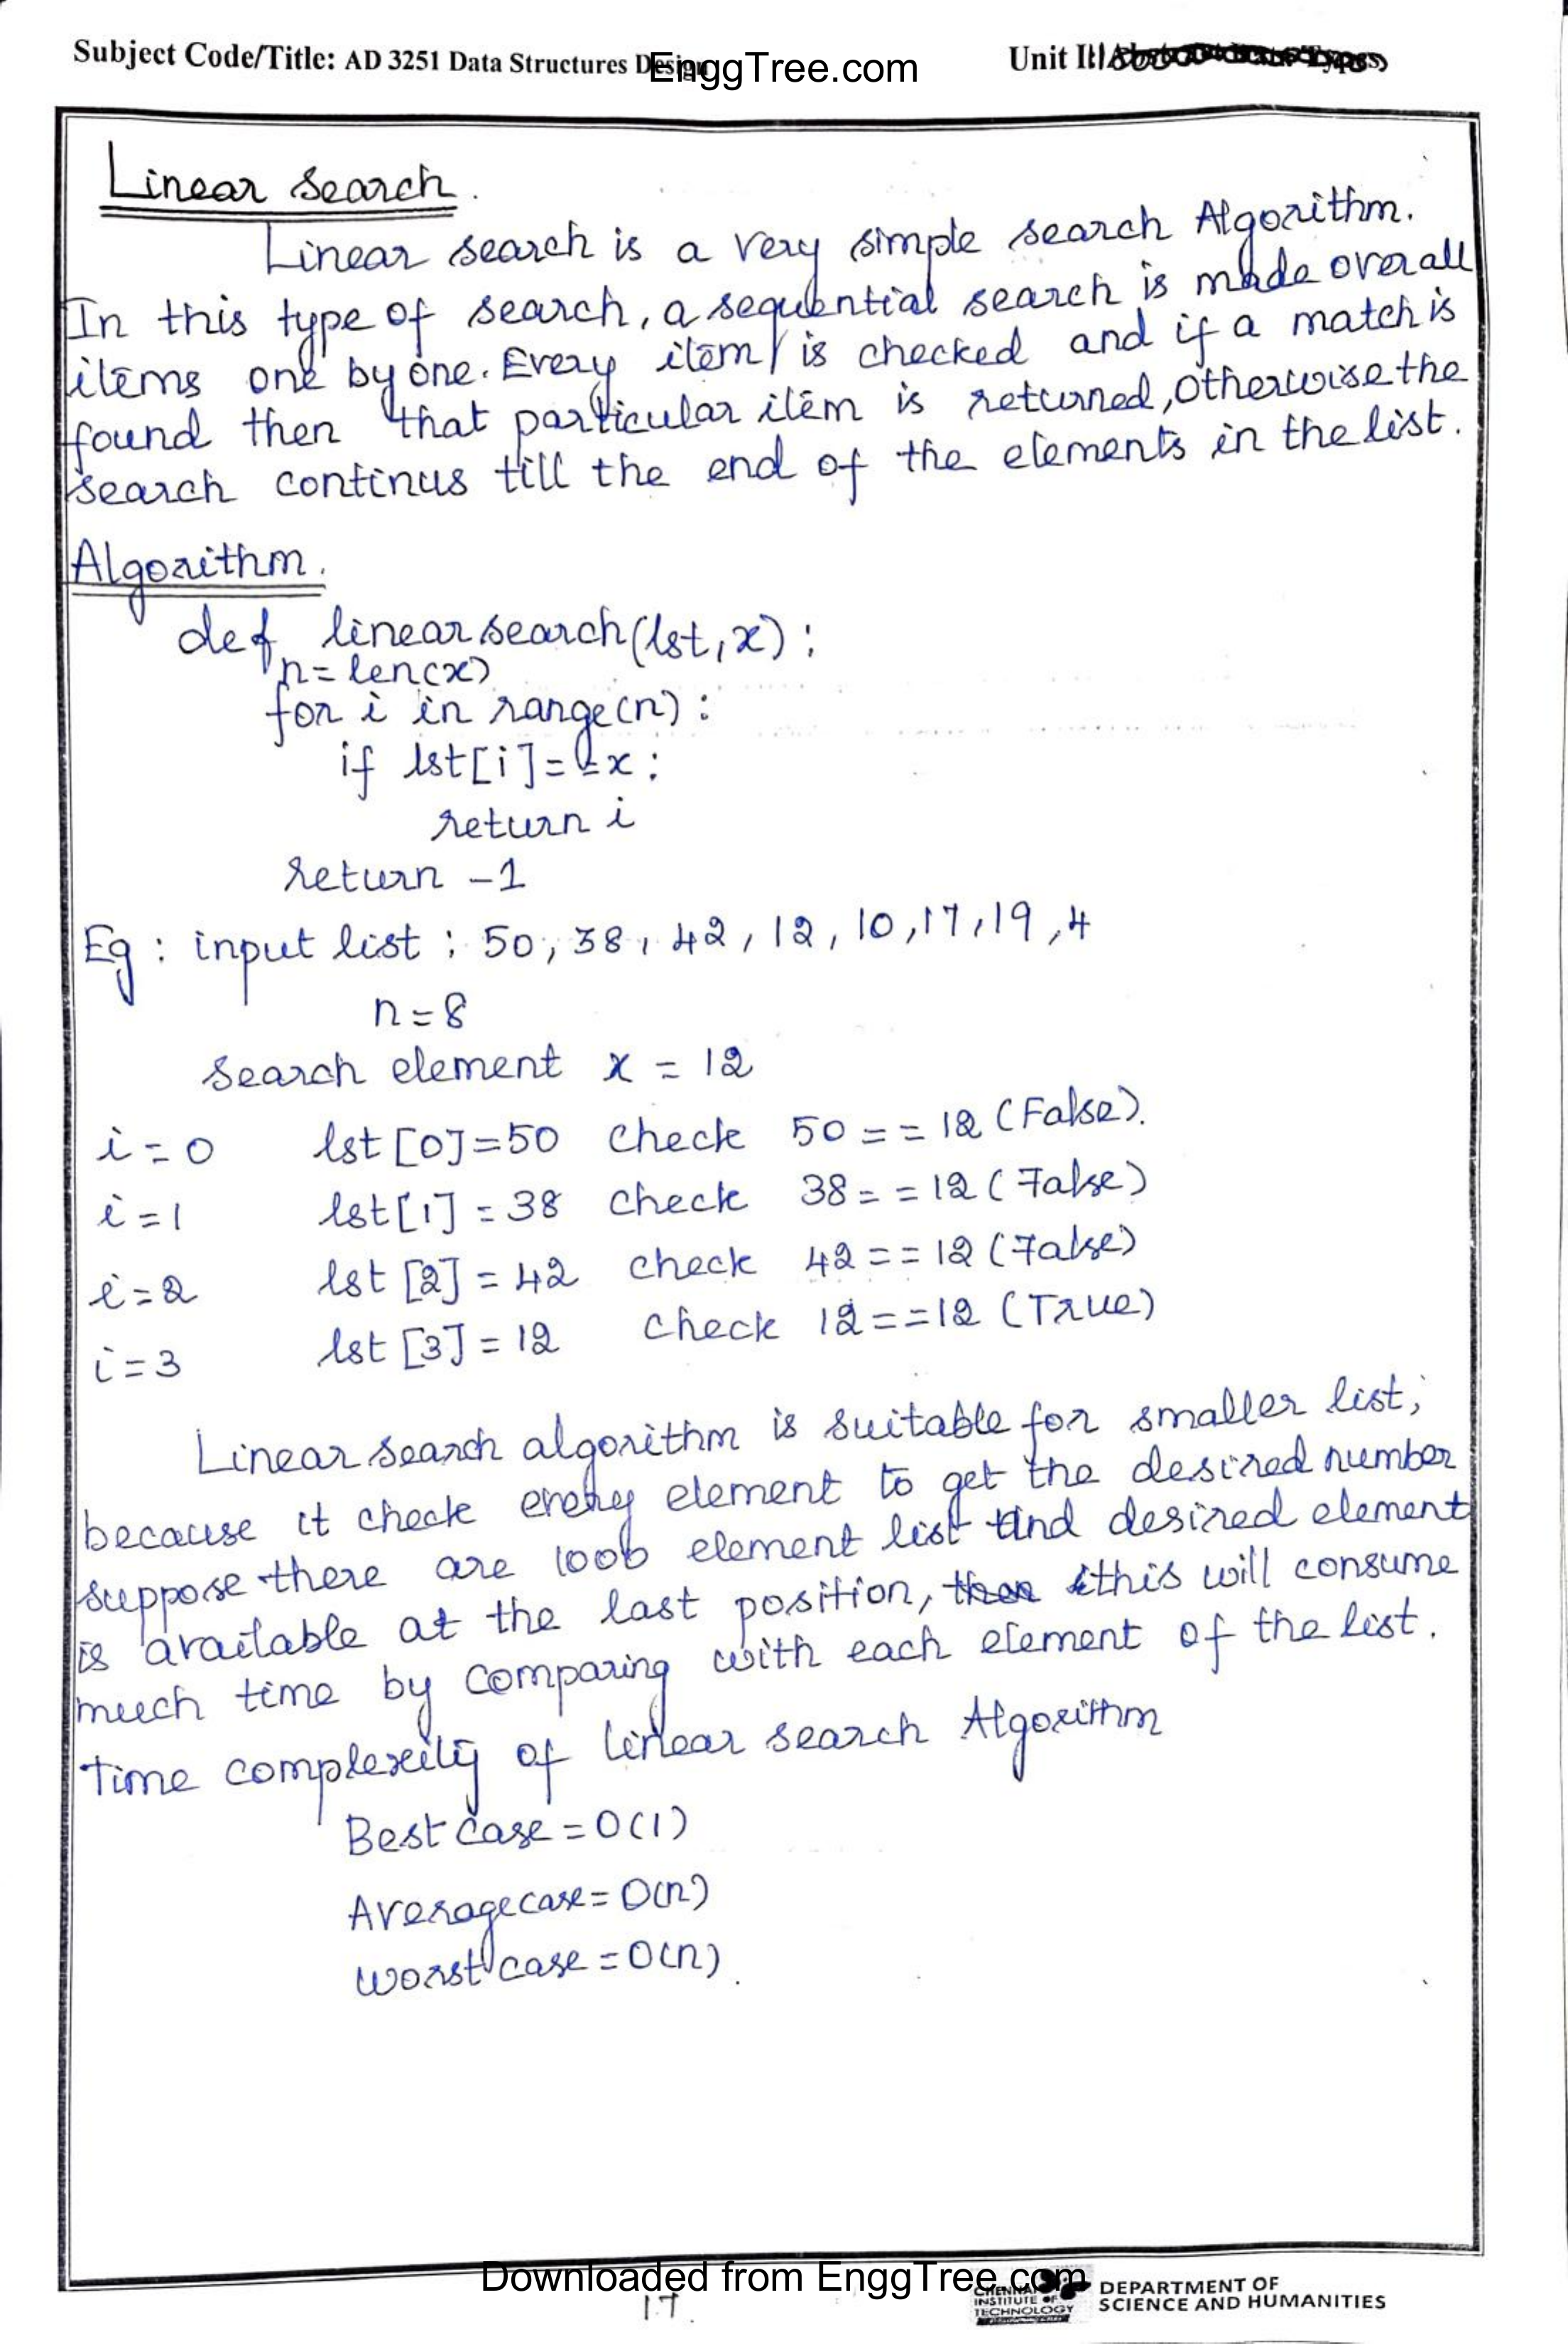 Subject Code/Title: AD 3251 Data Structures Design
EnggTree.com
Unit III
Linear search.
Linear search is a very simple search Algorithm.
In this type of search, a sequential search is made over all
items one by one. Every item is checked and if a match is
found then that particular item is returned, otherwise the
search continus till the end of the elements in the list.
Algorithm.
def linearsearch(lst,x):
n=len(x)
for i in range(n):
if lst[i]==x:
return i
return -1
Eg: input list: 50, 38, 42, 12, 10, 17, 19, 4
n=8
search element x = 12
i=0 lst[0]=50 check 50==12 (False).
i=1 lst[1]=38 check 38==12 (False)
i=2 lst[2]=42 check 42==12 (False)
i=3 lst[3]=12 check 12==12 (True)
Linear search algorithm is suitable for smaller list,
because it check every element to get the desired number
suppose there are 1000 element list and desired element
is available at the last position, this will consume
much time by comparing with each element of the list.
Time complexity of linear search Algorithm
Best case=O(1)
Average case=O(n)
worst case=O(n).
Downloaded from EnggTree.com
17
CHENNAI
INSTITUTE OF
TECHNOLOGY
DEPARTMENT OF
SCIENCE AND HUMANITIES